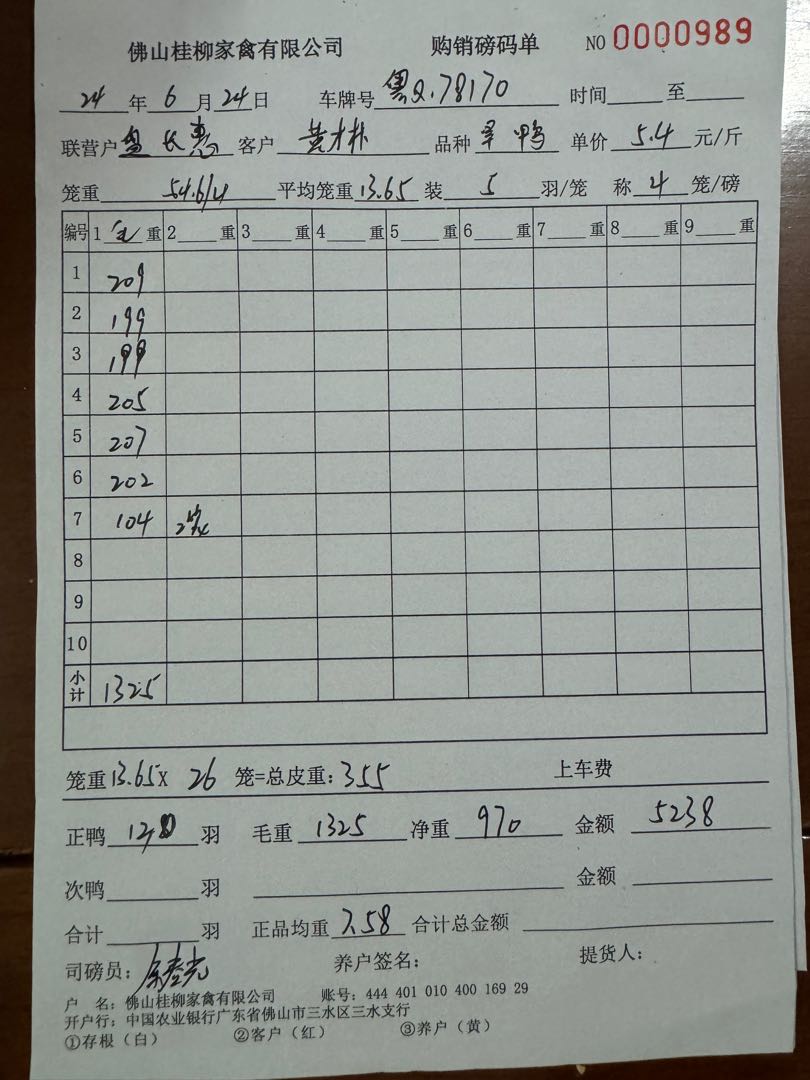 佛山桂柳家禽有限公司 购销磅码单 NO 0000989
24 年 6 月 24 日 车牌号 粤Q.78170 时间 至
联营户 盘长惠 客户 黄才朴 品种 羊鸭 单价 5.4 元/斤
笼重 54.6/4 平均笼重 13.65 装 5 羽/笼 称 4 笼/磅
编号 1 毛 重 2 重 3 重 4 重 5 重 6 重 7 重 8 重 9 重
1 209
2 199
3 199
4 205
5 207
6 202
7 104
8
9
10
小计 1325
笼重 13.65 X 26 笼=总皮重: 355 上车费
正鸭 羽 毛重 1325 净重 970 金额 5238
次鸭 羽 金额
合计 羽 正品均重 7.58 合计总金额
司磅员: 养户签名: 提货人:
户 名: 佛山桂柳家禽有限公司 账号: 444 401 010 400 169 29
开户行: 中国农业银行广东省佛山市三水区三水支行
①存根(白) ②客户(红) ③养户(黄)